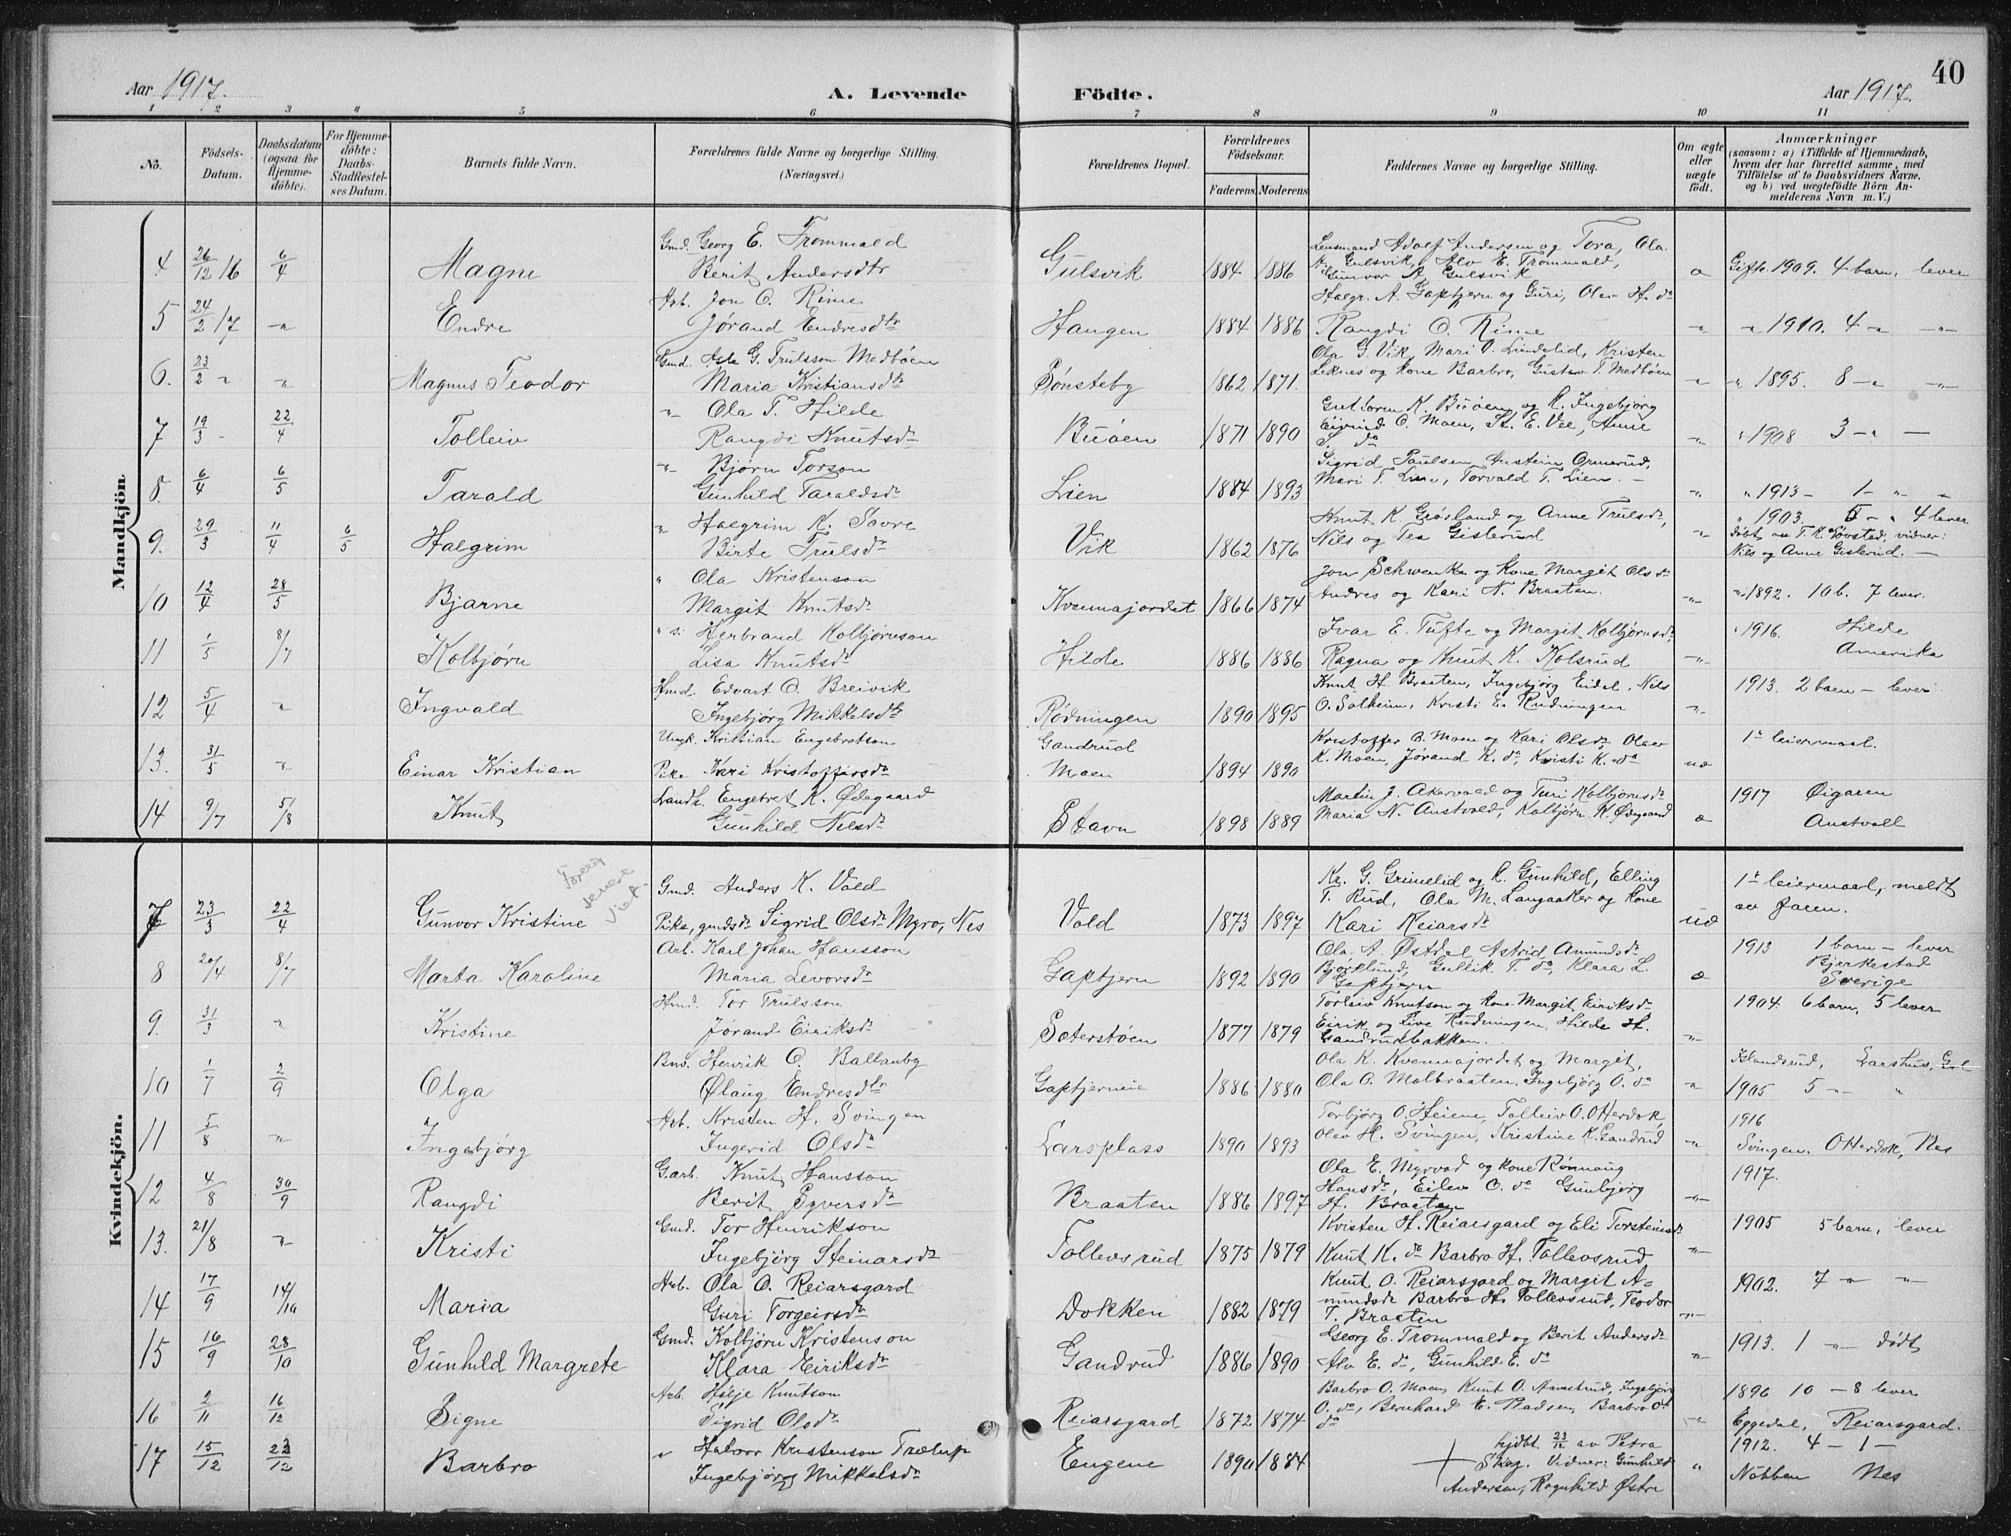 40
Aar 1917. A. Levende Födte. Aar 1917.
1 2 3 4 5 6 7 8 9 10 11
No. Födsels-Datum. Daabsdatum (ogsaa for Hjemmedöbte). For Hjemmedöbte: Daabs-Stadfæstelses Datum. Barnets fulde Navn. Forældrenes fulde Navne og borgerlige Stilling. (Næringsvei.) Forældrenes Bopæl. Forældrenes Födselsaar. Faderens. Moderens. Faddernes Navne og borgerlige Stilling. Om ægte eller uægte födt. Anmærkninger (saasom: a) i Tilfælde af Hjemmedaab, hvem der har forrettet samme, med Tilföielse af to Daabsvidners Navne, og b) ved uægtefödte Börn Anmelderens Navn m. V.)
Mandkjön.
4 26/12 16 6/4 Magne Gmd. Georg E. Trommald
Berit Andersdtr Gulsvik 1884 1886 Lensmand Adolf Andersen og Tora, Ola
Gulsvik, Alv E. Trommald,
Gunvor A. Gulsvik Gift 1909. 4 barn, lever
5 24/2 17 Endre Arb. Jon O. Rime
Jørand Endresdtr Haugen 1884 1886 Halgr. A. Gaptjern og Guri, Olav H. do
Rangdi O. Rime 1910. 4
6. 23/2 Magnus Teodor Gmd. Asle G. Trulsson Medbøen
Maria Kristiansdtr Sønsteby 1862 1871. Ola G. Vik, Mari O. Lindelid, Kristen
Leknes og kone Barbro, Gustav T. Medbøen 1895. 8
7 19/3 22/4 Tolleiv Ola T. Hilde
Rangdi Knutsdr Buøen 1871 1890 Guttorm K. Buøen og K. Ingebjørg
Eivind O. Moen, K. E. Vee, Anne
S. do 1908 3
8. 6/4 6/5 Tarald Bjørn Torson
Gunhild Taraldsdr Lien 1884 1893 Sigrid Paulsen, Anstein Ormerud,
Mari T. Lien, Torvald T. Lien. 1913 - 1
9. 29/3 11/4 6/5 Halgrim Halgrim K. Sovre
Birte Trulsdr Vik 1862 1876 Knut K. Grøsland og Anne Trulsdr,
Nils og Tea Gislerud 1903. 5 4 lever
døbt av T. K. Søvstad, vidner:
Nils og Anne Gislerud.
10 12/4 28/5 Bjarne Ola Kristenson
Margit Knutsdr Kvennajordet 1866 1874 Jon Schwenke og kone Margit Olsdr
Andres og Kari N. Braaten. 1892. 10 b. 7 lever.
11 1/5 8/7 Kolbjørn Herbrand Kolbjørnson
Lisa Knutsdr Hilde 1886 1886 Ivar E. Tufte og Margit Kolbjørnsdr,
Ragna og Knut K. Kolsrud 1916. Hilde
Amerika
12 5/4 Ingvald Hmd. Edvart O. Breivik
Ingebjørg Mikkelsdtr Rødningen 1890 1895 Knut H. Braaten, Ingebjørg Eidal, Nils
O. Solheim, Kristi E. Rudningen 1913. 2 barn - lever
13. 31/5 Einar Kristian Ungk. Kristian Engebretson
Pike Kari Kristoffersdr Gandrud
Moen 1894 1890 Kristoffer O. Moen og Kari Olsdr, Olav
K. Moen, Jørand K. do, Kristi K. do uæ 1ste leiermaal.
14 9/7 5/8 Knut Landh. Engebret K. Ødegaard
Gunhild Nilsdr Stavn 1898 1889 Martin J. Akervold og Turi Kolbjørnsdr
Maria N. Austvold, Kolbjørn K. Ødegaard 1917 Øigaren
Austvoll
Kvindekjön.
7 23/3 22/4 Gunvor Kristine Gmd. Anders K. Vold
Pike, gmdsdr Sigrid Olsdr Myro, Nes Vold 1873 1897 Kr. G. Grimelid og K. Gunhild, Elling
T. Rud, Ola M. Langaaker og kone
Kari Reiarsdr uæ 1ste leiermaal, meldt
av faren.
senere viet
8 20/4 8/7 Marta Karoline Arb. Karl Johan Hansson
Maria Levorsdr Gaptjern 1892 1890 Ola A. Østdal, Astrid Amundsdr
Bjørklund, Gullik T. do, Klara L.
Gaptjern 1913 1 barn - lever
Bjerkestad
Sverige
9. 31/3 Kristine Hmd. Tor Trulsson
Jørand Eiriksdr Seterstøen 1877 1879 Torleiv Knutson og kone Margit Eiriksdr
Eirik og Live Rudningen, Hilde H.
Gandrudbakken. 1904. 6 barn, 5 lever
10 1/7 2/9 Olga Bmd. Henrik O. Ballanby
Ølaug Endresdtr Gaptjerneie 1886 1880 Ola K. Kvennajordet og Margit,
Ola O. Molbraaten, Ingebjørg O. do Larshus, Gol
1905 5
11 5/8 Ingebjørg Arb. Kristen H. Svingen
Ingerid Olsdr Larsplass 1890 1893 Torbjørg O. Heiene, Tolleiv O. Otterdok,
Olav H. Svingen, Kristine K. Gandrud 1916
Svingen. Otterdok, Nes
12 4/8 30/9 Rangdi Garb. Knut Hansson
Berit Syversdr Braaten 1886 1897 Ola E. Myrvad og kone Rønnaug
Hansdr, Eilev O. do Gunbjørg
H. Braaten 1917.
13. 21/8 Kristi Gmd. Tor Henrikson
Ingebjørg Steinarsdr Tollevsrud 1875 1879 Kristen H. Reiarsgard og Eli Torsteinsdr
Knut K. do Barbro H. Tollevsrud 1905 5 barn, lever
14 17/9 14/10 Maria Arb. Ola O. Reiarsgard
Guri Torgeirsdr Dokken 1882 1879 Knut O. Reiarsgard og Margit A-
mundsdr Barbro H. Tollevsrud, Teodor
T. Braaten 1902. 7
15 16/9 28/10 Gunhild Margrete Gmd. Kolbjørn Kristenson
Klara Eiriksdr Gandrud 1886 1890 Georg E. Trommald og Berit Andersdr
Alv E. do, Gunhild E. do 1913. 1 dødt
16 2/11 16/12 Signe Arb. Helje Knutson
Sigrid Olsdr Reiarsgard 1872 1874 Barbro O. Moen, Knut O. Ingebjørg
O. do, Bernhard E. Madsen, Barbro O.
do 1896 10 - 8 lever
Eggedal, Reiarsgard.
17 15/12 23/12 Barbro Halvor Kristenson Trælup
Ingebjørg Mikkelsdr Engene 1890 1884 hjdbt. 23/12 av Petra
Skaj. Vidner: Gunhild
Andersen, Ragnhild Østre 1912. 4 - 1 -
Nobben Nes